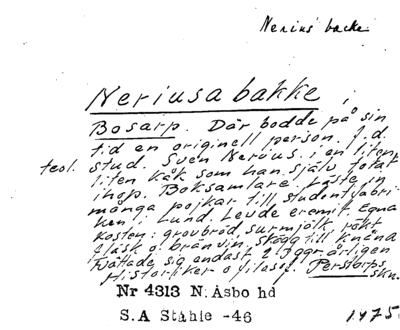 Nerius backe
Neriusa bakke,
Bosarp. Där bodde på sin
tid en originell person, f.d.
teol. stud. Sven Nerius, i en liten,
liten kåk som han själv totat
ihop. Boksamlare. Läste in
många pojkar till studentfabri-
ken i Lund. Levde eremit. Egna
kosten: grovbröd, surmjölk, rökt
fläsk o. bränvin. Skägg till knäna
Tvättade sig endast 2 ggr. årligen
Historiker o filosof. Perstorps
skn.
Nr 4313 N. Åsbo hd
S.A Ståhle -46
1475.